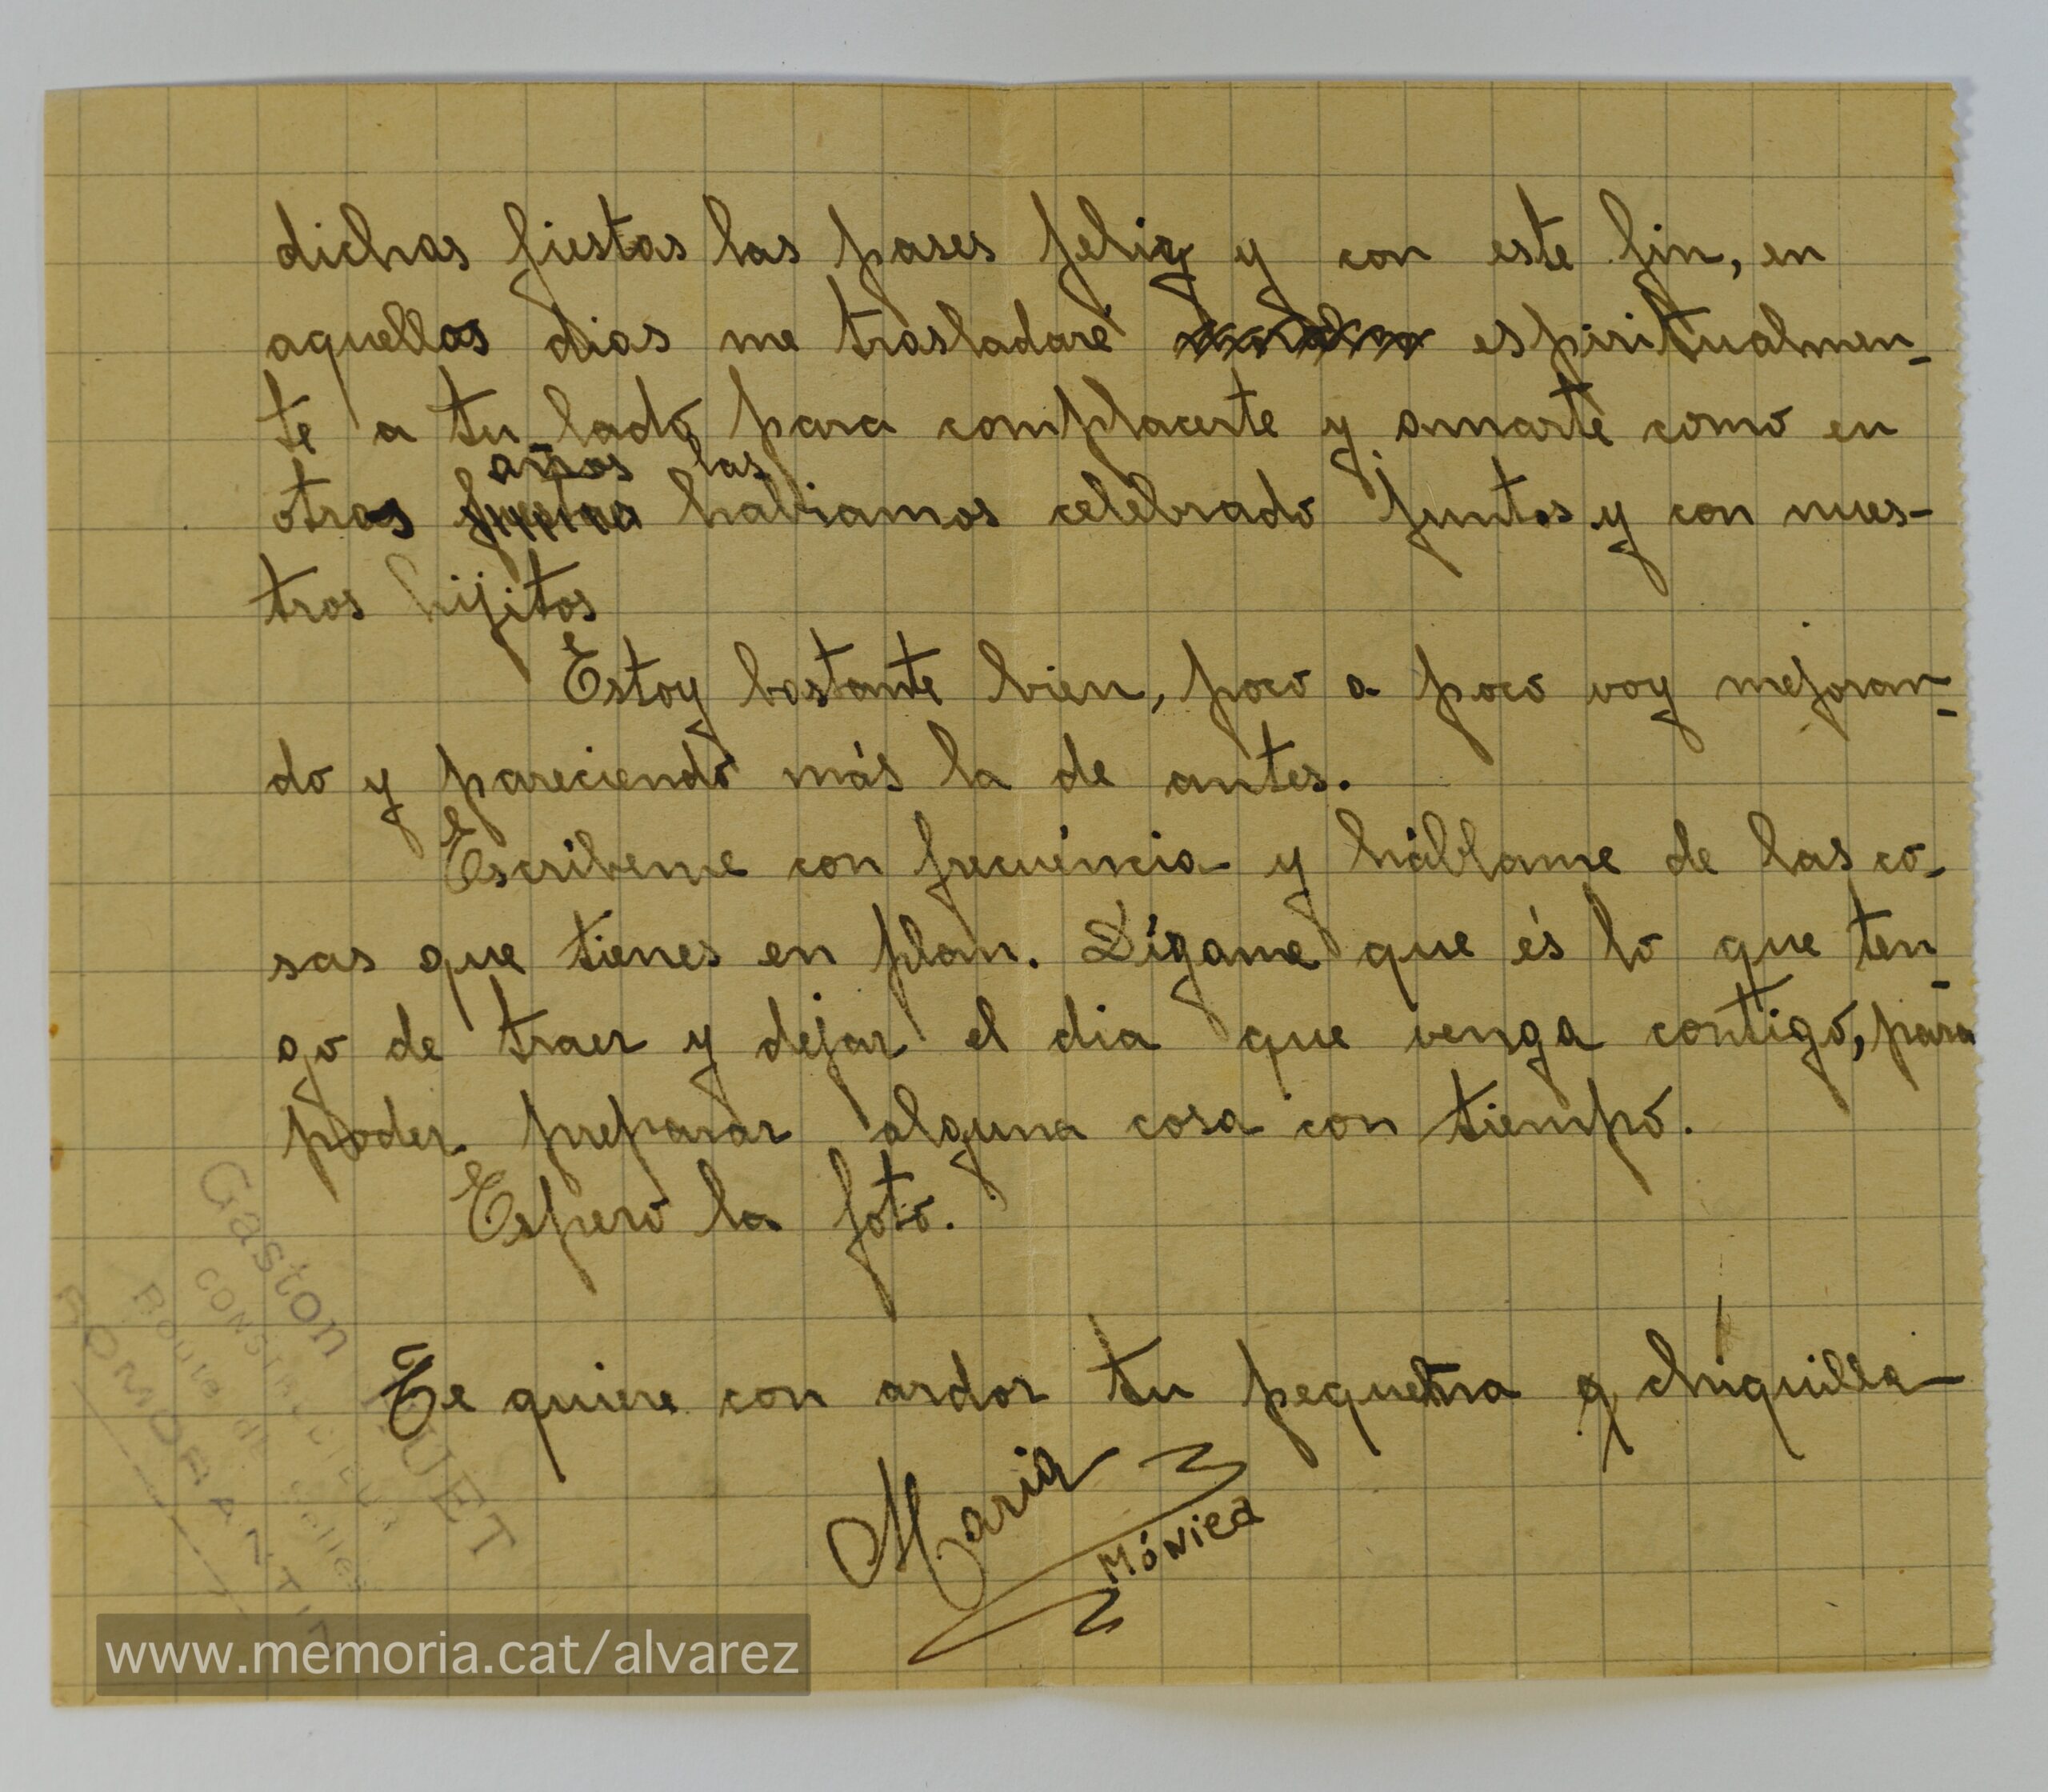 dichas fiestas las pases feliz y con este fin, en
aquellos dias me trasladaré espiritualmen-
te a tu lado, para complacerte y amarte como en
años las
otros habiamos celebrado juntos y con nues-
tros hijitos
Estoy bastante bien, poco a poco voy mejoran-
do y pareciendo más la de antes.
Escribeme con frecuéncia y háblame de las co-
sas que tienes en plan. Dígame que és lo que ten-
go de traer y dejar el dia que venga contigo, para
poder preparar alguna cosa con tiempo.
Espero la foto.
Te quiere con ardor tu pequeña y chiquilla
Maria
Mónica
Gaston HUET
CONSTRUCTEUR
Route de Selles
ROMORANTIN
www.memoria.cat/alvarez